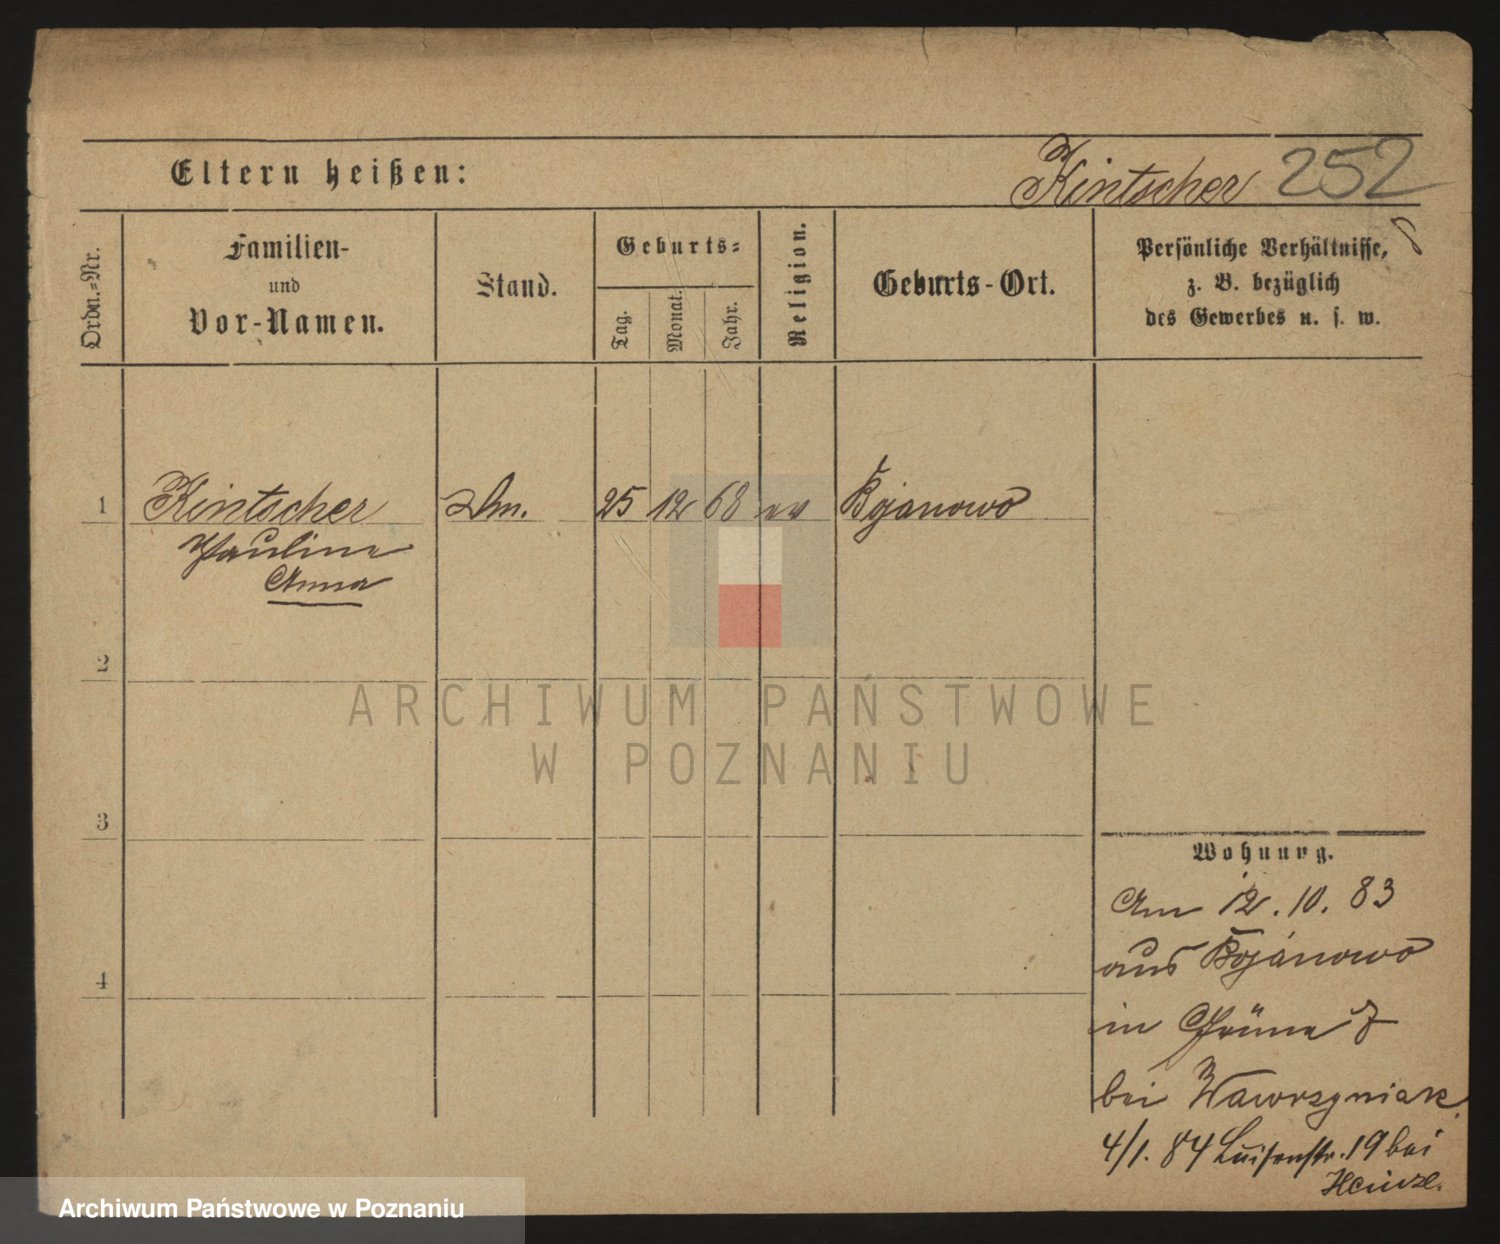 Eltern heißen:
Kintscher 252
Ordn.-Nr.
Familien-
und
Vor-Namen.
Stand.
Geburts-
Tag.
Monat.
Jahr.
Religion.
Geburts-Ort.
Persönliche Verhältnisse,
z. B. bezüglich
des Gewerbes u. s. w.
1 Kintscher 25 12 68 ev Bojanowo
Pauline
Anna
2
ARCHIWUM PAŃSTWOWE
W POZNANIU
3
4
Wohnung.
Am 12. 10. 83
aus Bojanowo
in Grüne 7
bei Wawrzyniak
4/1. 84 Luisenstr. 19 bei
Archiwum Państwowe w Poznaniu